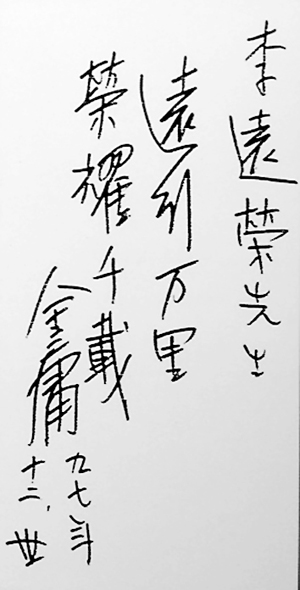 李遠榮先生
遠引万里
榮耀千載
金庸
九七年
十二、